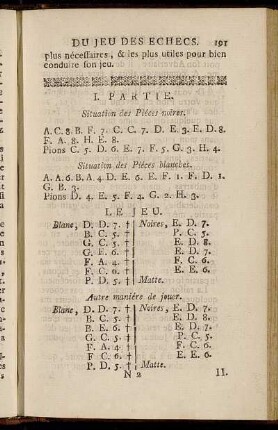 DU JEU DES ECHECS. 191
plus nécessaires, & les plus utiles pour bien
conduire son jeu.
I. PARTIE.
Situation des Piéces noires.
A. C. 8. B. F. 7. C. C. 7. D. E. 3. E. D. 8.
F. A. 8. H. E. 8.
Pions C. 5. D. 6. E. 7. F. 5. G. 3. H. 4.
Situation des Piéces blanches.
A. A. 6. B. A. 4. D. E. 6. E. F. 1. F. D. 1.
G. B. 3.
Pions D. 4. E. 5. F. 4. G. 2. H. 3.
LE JEU.
Blanc, D. D. 7. † Noires, E. D. 7.
B. C. 5. † P. C. 5.
G. C. 5. † E. D. 8.
G. E. 6. † E. D. 7.
F. A. 4. † F. C. 6.
F. C. 6. † E. E. 6.
P. D. 5. † Matte.
Autre maniére de jouer.
Blanc, D. D. 7. † Noires, E. D. 7.
B. C. 5. † E. D. 8.
B. E. 6. † E. D. 7.
G. C. 5. † P. C. 5.
F. A. 4. † F. C. 6.
F. C. 6. † E. E. 6.
P. D. 5. † Matte.
N 2 II.